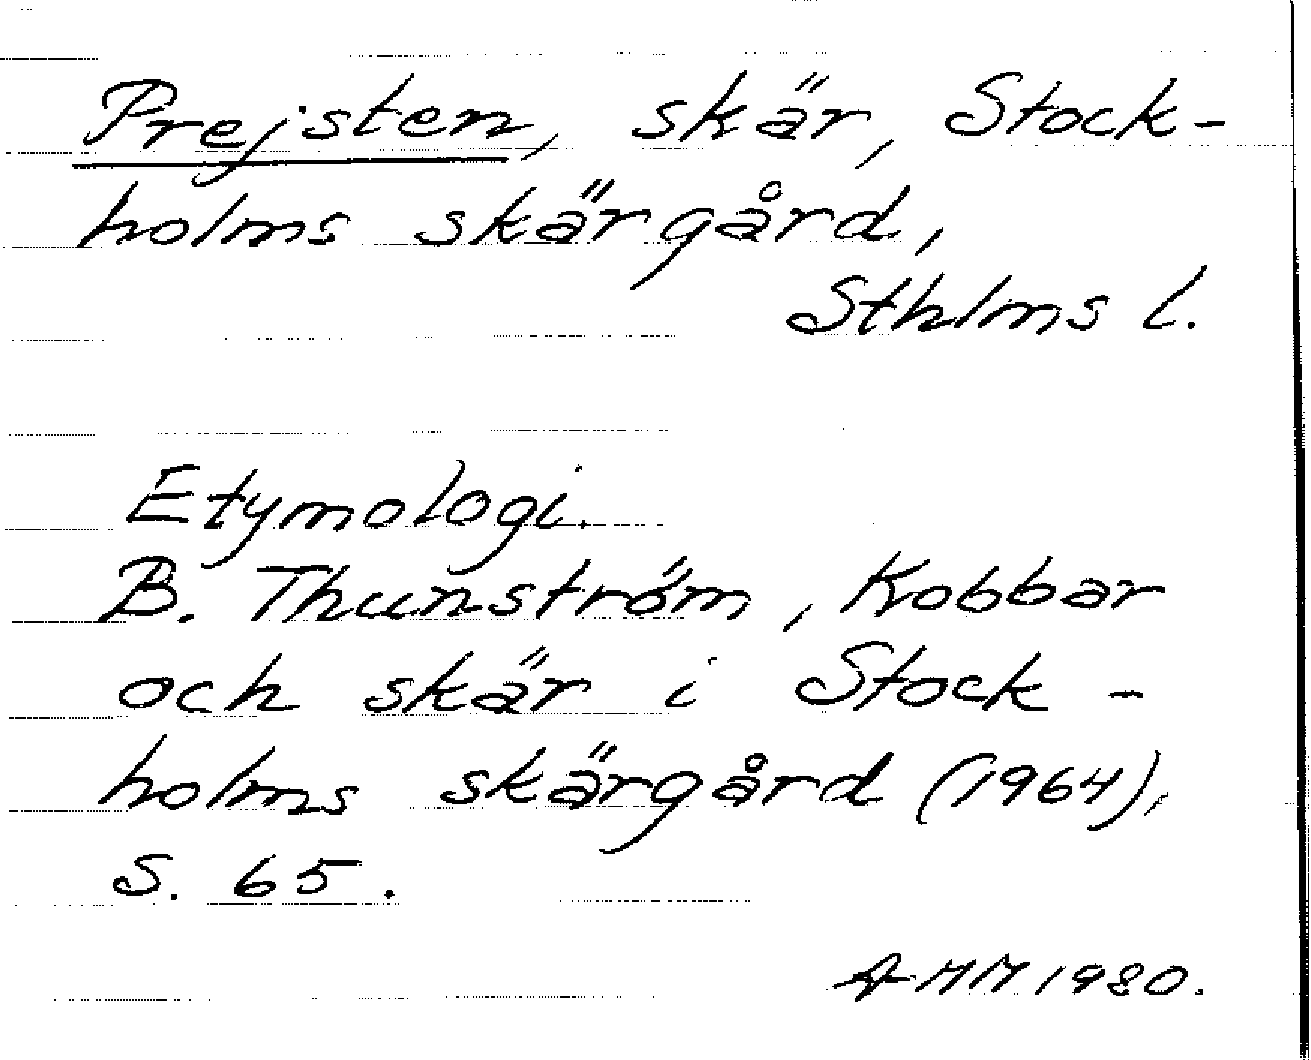 Prejsten, skär, Stock-
holms skärgård,
Sthlms l.
Etymologi.
B. Thunström, Kobbar
och skär i Stock-
holms skärgård (1964),
S. 65.
AMM 1980.